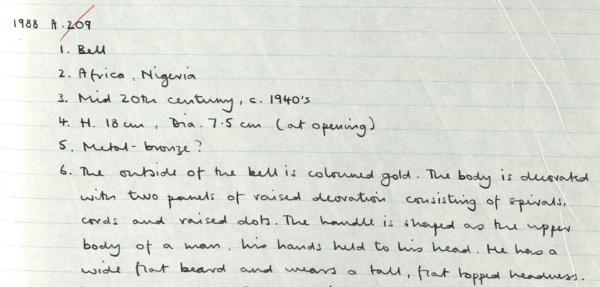 1988 A.209
1. Bell
2. Africa, Nigeria
3. Mid 20th century, c. 1940's
4. H. 18 cm, Dia. 7.5 cm (at opening)
5. Metal - bronze?
6. The outside of the bell is coloured gold. The body is decorated
with two panels of raised decoration consisting of spirals,
cords and raised dots. The handle is shaped as the upper
body of a man, his hands held to his head. He has a
wide flat beard and wears a tall, flat topped headdress.